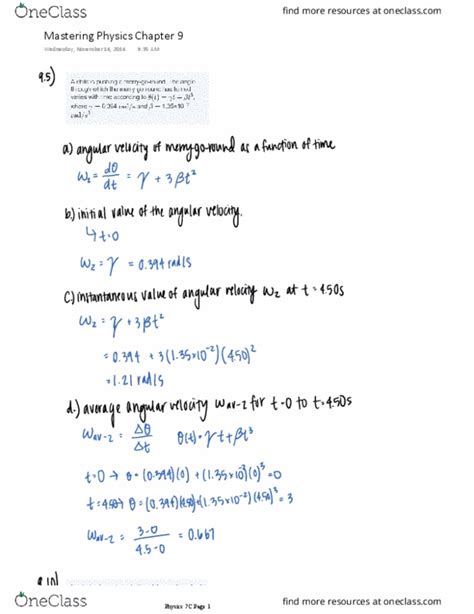 OneClass
find more resources at oneclass.com
Mastering Physics Chapter 9
Wednesday, November 16, 2016 9:35 AM
9.5)
A child is pushing a merry-go-round. The angle
through which the merry-go-round has turned
varies with time according to θ(t) = γt + βt³,
where γ = 0.394 rad/s and β = 1.35×10⁻²
rad/s³
a) angular velocity of merry-go-round as a function of time
ωz = dθ/dt = γ + 3βt²
b) initial value of the angular velocity.
↳ t=0
ωz = γ = 0.394 rad/s
c) instantaneous value of angular velocity ωz at t=4.50s
ωz = γ + 3βt²
= 0.394 + 3(1.35×10⁻²)(4.50)²
= 1.21 rad/s
d.) average angular velocity ωav-z for t=0 to t=4.50s
ωav-z = Δθ/Δt θ(t)=γt+βt³
t=0 → θ=(0.394)(0)+(1.35×10⁻²)(0)³=0
t=4.50→ θ=(0.394)(4.50)+(1.35×10⁻²)(4.50)³=3
ωav-z = 3-0/4.5-0 = 0.667
OneClass
Physics 7C Page 1
find more resources at oneclass.com